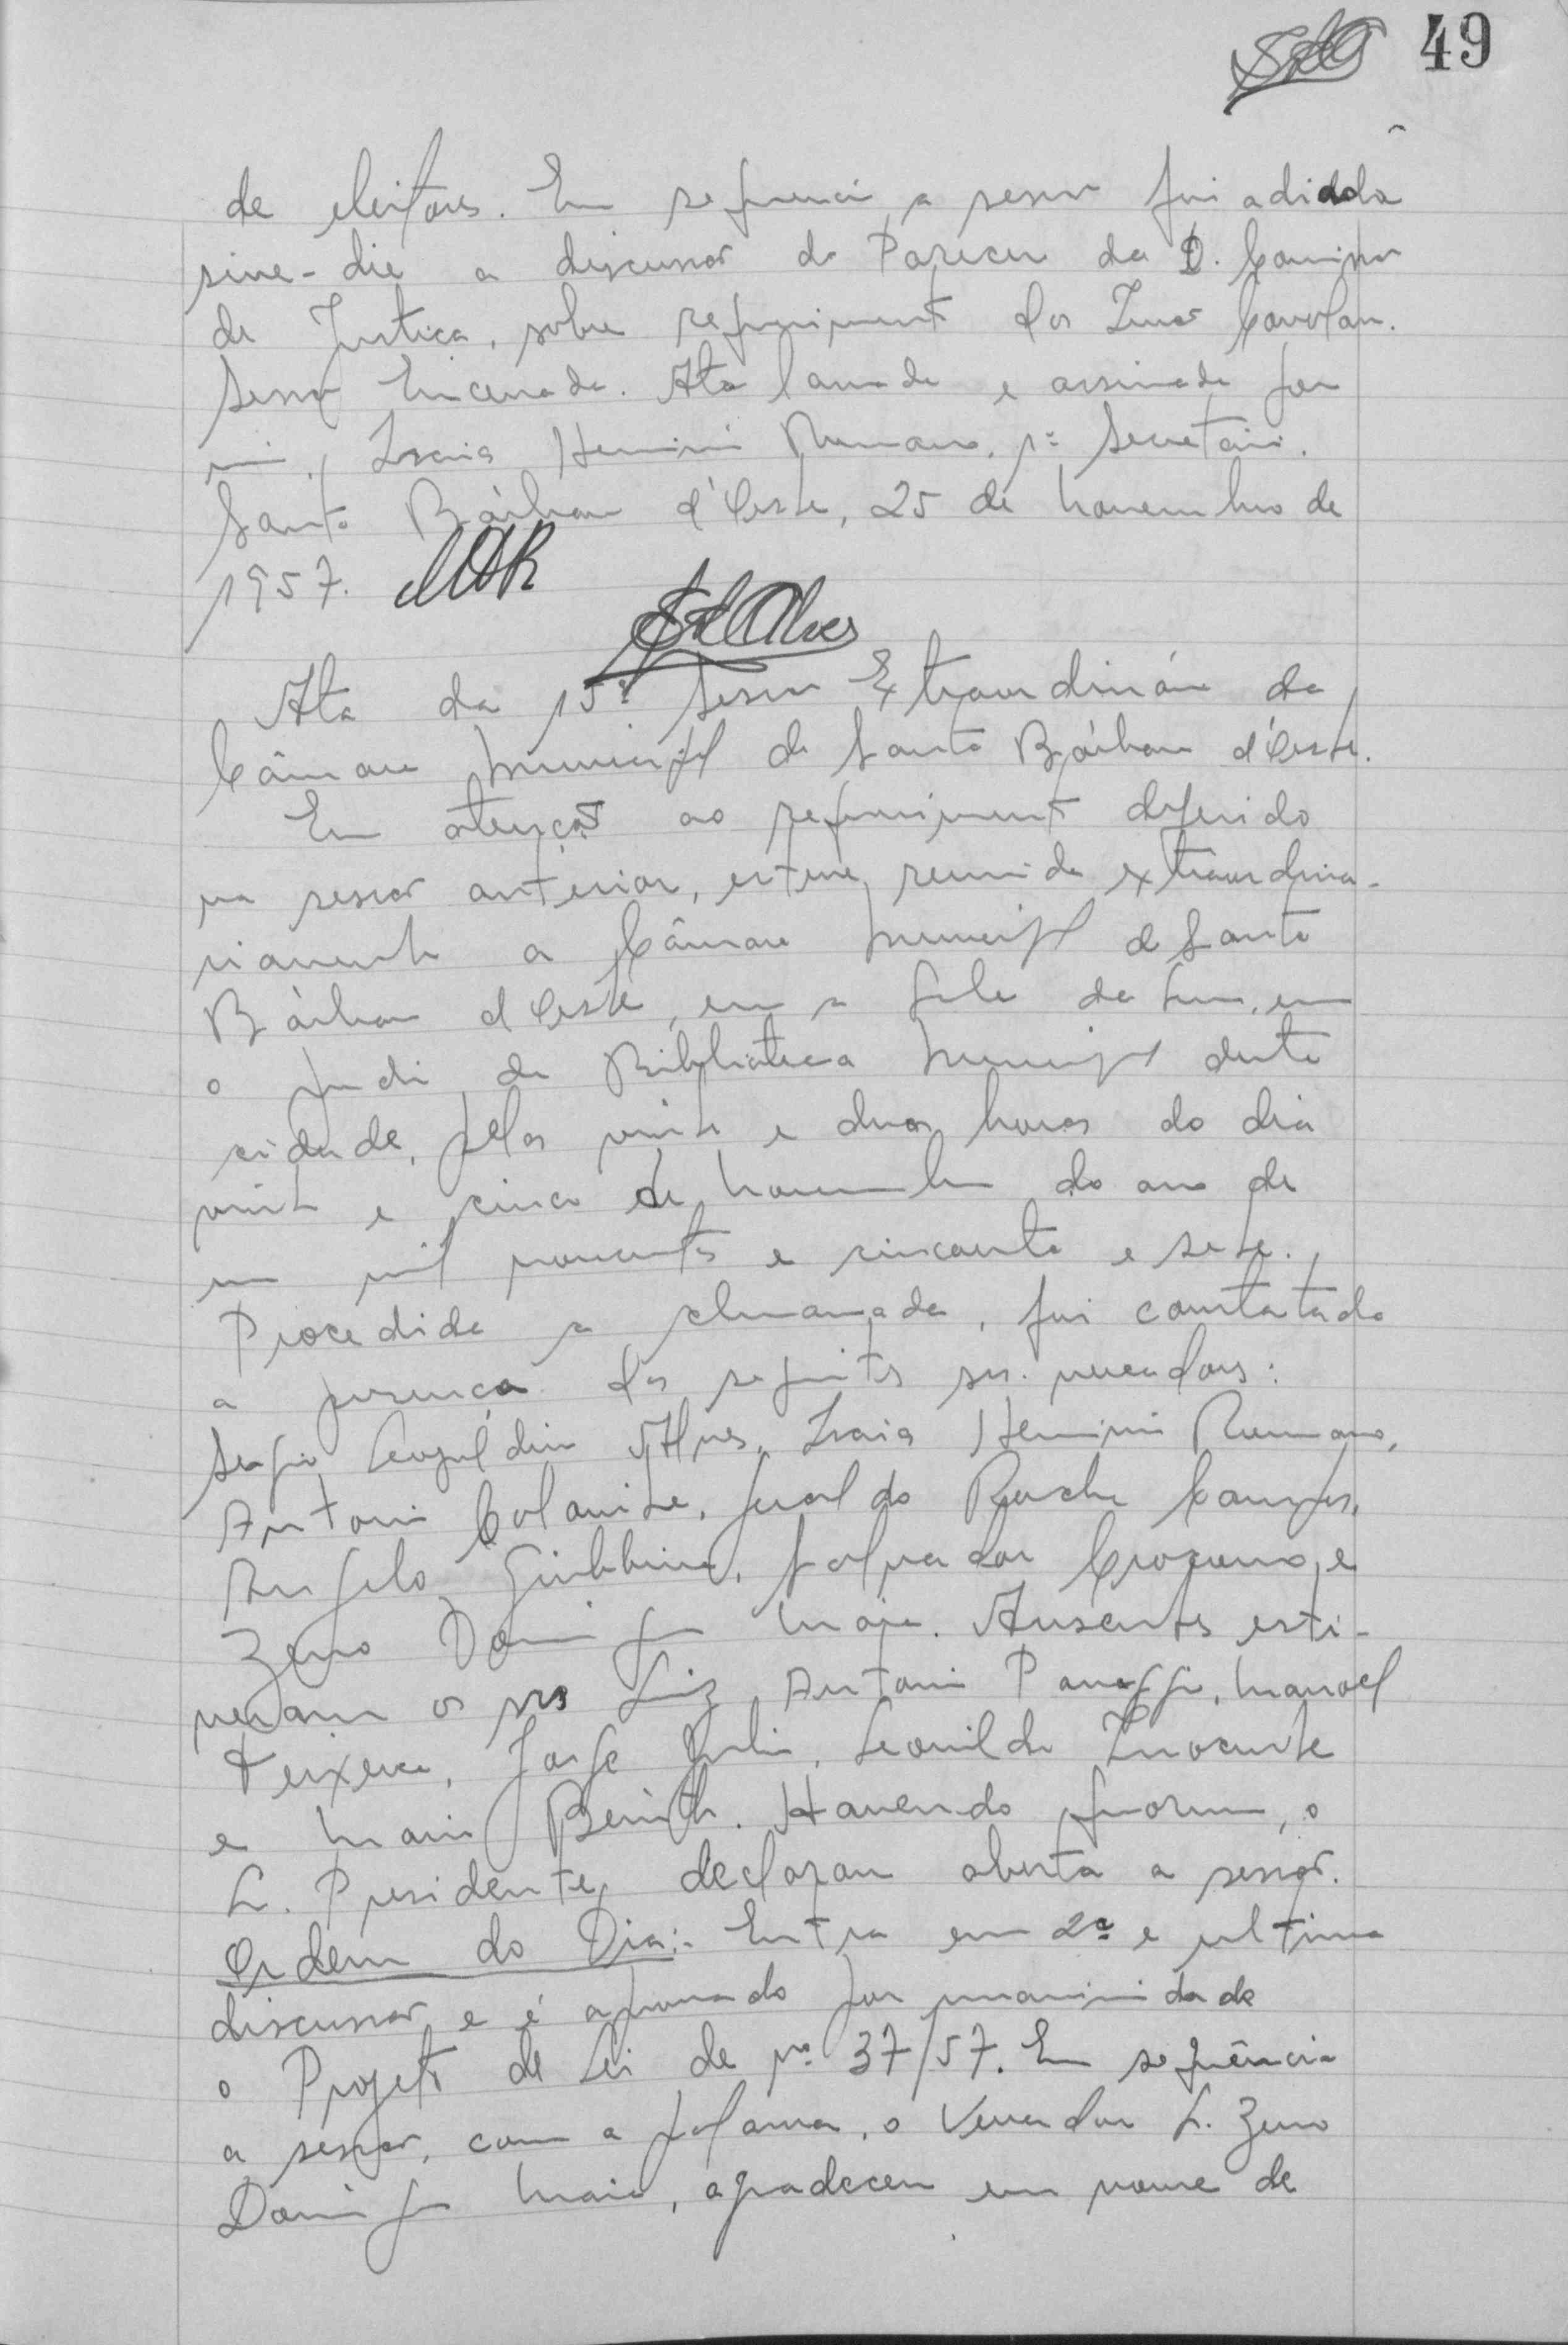 49
de eleitores. Em sequencia, a sessão foi adiada
sine-die a discussão do Parecer da D. Comissão
de Justiça, sobre requerimento dos Irmãos Cavolan.
Sessão Encerrada. Ata lavrada e assinada por
mim, Isaias Herminio Romano, 1º Secretario.
Santa Bárbara d'Oeste, 25 de novembro de
1957.
S L Alves
Ata da 15ª Sessão Extraordinária da
Câmara Municipal de Santa Bárbara d'Oeste.
Em atenção ao requerimento deferido
na sessão anterior, esteve reunida extraordina-
riamente a Câmara Municipal de Santa
Bárbara d'Oeste, em a sala de em
o predio da Biblioteca Municipal desta
cidade, pelas vinte e duas horas do dia
vinte e cinco de novembro do ano de
um mil novecentos e cincoenta e sete.
Procedida a chamada, foi constatado
a presença dos seguintes srs. vereadores:
Sergio Leopoldino Alves, Isaias Herminio Romano,
Antonio Colamite, Geraldo Rocha Campos,
Angelo Giubbina, Salvador e
Zeno Domingos Maia. Ausentes esti-
veram os srs Luiz Antonio Panaggio, Manoel
Teixeira, Jorge Julio, Leonildo Inocente
e Mario Benith. Havendo quorum, o
S. Presidente, declarou aberta a sessão.
Ordem do Dia:- Entra em 2ª e ultima
discussão, e é aprovado por unanimidade
o Projeto de Lei de nº 37/57. Em sequência
a sessão, com a palavra, o Vereador S. Zeno
Domingos Maia, agradeceu em nome de